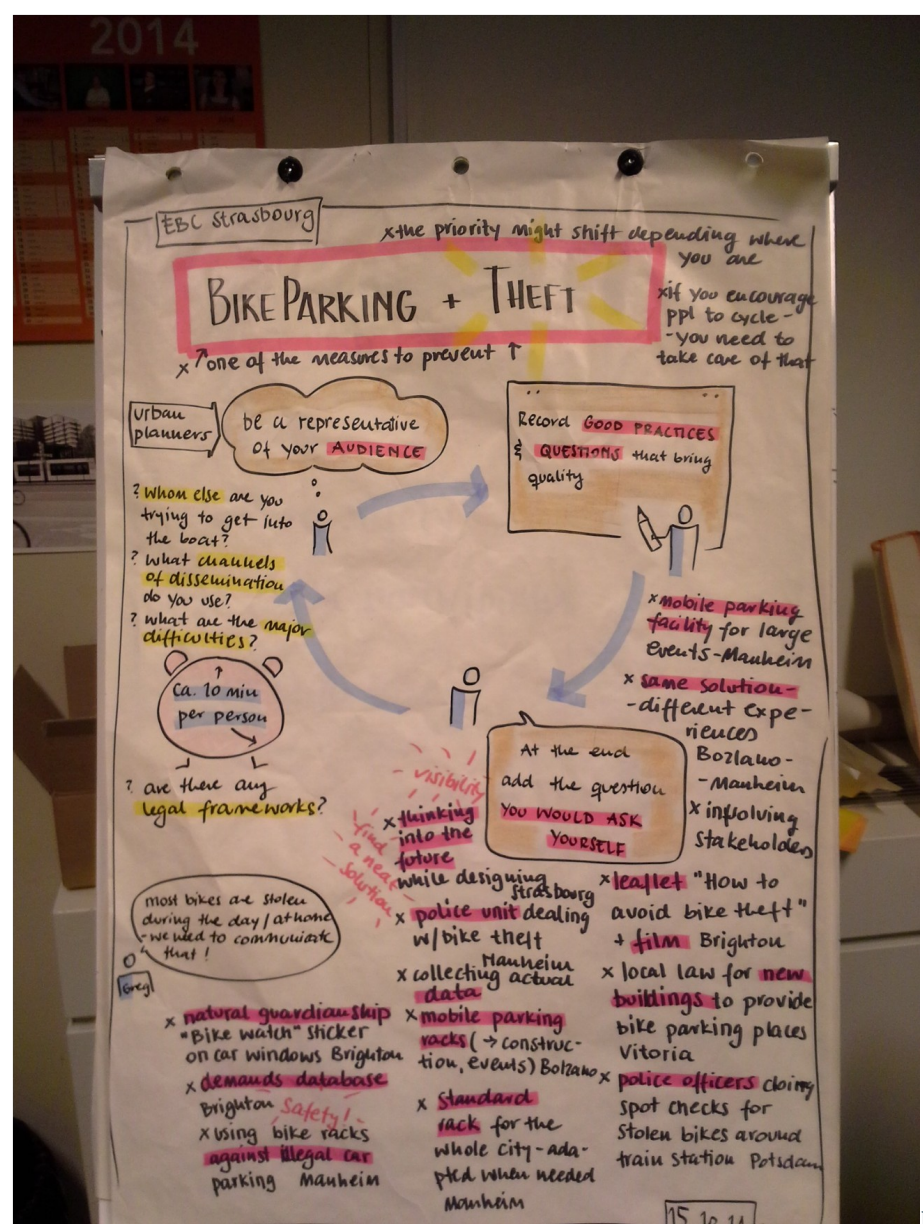 2014
EBC Strasbourg
x the priority might shift depending where
you are
BIKE PARKING + THEFT
x if you encourage
ppl to cycle -
- you need to
take care of that
x ↗ one of the measures to prevent ↑
urban
planners
be a representative
of your AUDIENCE
Record GOOD PRACTICES
& QUESTIONS that bring
quality
? Whom else are you
trying to get into
the boat?
? What channels
of dissemination
do you use?
? what are the major
difficulties?
ca. 10 min
per person
? are there any
legal frameworks?
x mobile parking
facility for large
events - Manheim
x same solution -
- different expe-
riences
Bozlano -
- Manheim
x involving
stakeholders
At the end
add the question
YOU WOULD ASK
YOURSELF
visibility
find
a neat
solution
x thinking
into the
future
while designing
Strasbourg
x police unit dealing
w/ bike theft
Manheim
x collecting actual
data
x mobile parking
racks (→ construc-
tion, events) Bolzano
x standard
rack for the
whole city - ada-
pted when needed
Manheim
x leaflet "How to
avoid bike theft"
+ film Brighton
x local law for new
buildings to provide
bike parking places
Vitoria
x police officers doing
spot checks for
stolen bikes around
train station Potsdam
most bikes are stolen
during the day / at home
- we need to communicate
that!
Greg
x natural guardianship
"Bike watch" sticker
on car windows Brighton
x demands database
Brighton Safety!
x using bike racks
against illegal car
parking Manheim